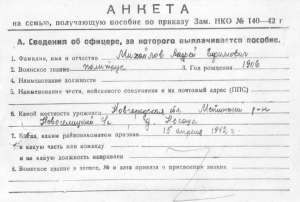 АНКЕТА
на семью, получающую пособие по приказу Зам. НКО № 140—42 г
А. Сведения об офицере, за которого выплачивается пособие.
1. Фамилия, имя и отчество Михайлов Андрей Ефимович
2. Воинское звание политрук 3. Год рождения 1906
4. Наименование должности
5. Наименование части, войскового соединения и их почтовый адрес (ППС)
6. Какой местности уроженец Новгородская обл. р-он
Новоселицкий с/с д.
7. Когда, каким райвоенкоматом призван 15 апреля 1942 г.
8. в какую часть или команду
и на какую должность направлен
9. Воинское звание в запасе, № и дата приказа о присвоении звания